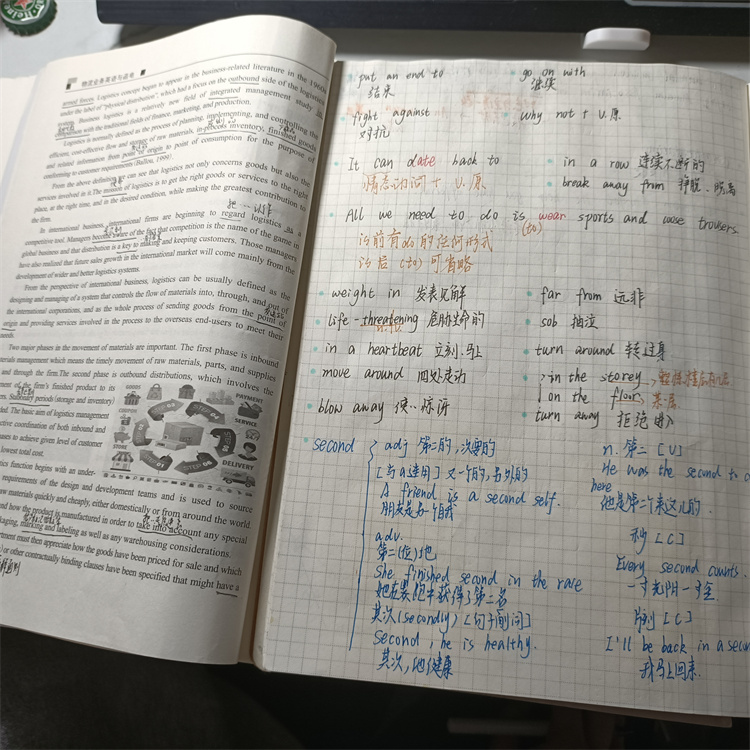 物流业务英语与函电
armed forces. Logistics concept began to appear in the business-related literature in the 1960s
under the label of "physical distribution", which had a focus on the outbound side of the logistics
system. Business logistics is a relatively new field of integrated management study in
comparison with the traditional fields of finance, marketing, and production.
Logistics is normally defined as the process of planning, implementing, and controlling the
efficient, cost-effective flow and storage of raw materials, in-process inventory, finished goods
and related information from point of origin to point of consumption for the purpose of
conforming to customer requirements (Ballou, 1999).
From the above definition we can see that logistics not only concerns goods but also the
services involved in it. The mission of logistics is to get the right goods or services to the right
place, at the right time, and in the desired condition, while making the greatest contribution to
the firm.
In international business, international firms are beginning to regard logistics as a
competitive tool. Managers become aware of the fact that competition is the name of the game in
global business and that distribution is a key to making and keeping customers. Those managers
have also realized that future sales growth in the international market will come mainly from the
development of wider and better logistics systems.
From the perspective of international business, logistics can be usually defined as the
designing and managing of a system that controls the flow of materials into, through, and out of
the international corporations, and as the whole process of sending goods from the point of
origin and providing services involved in the process to the overseas end-users to meet their
needs.
Two major phases in the movement of materials are important. The first phase is inbound
materials management which means the timely movement of raw materials, parts, and supplies
and through the firm. The second phase is outbound distributions, which involves the
ment of the firm's finished product to its
Stationary periods (storage and inventory)
The basic aim of logistics management
ective coordination of both inbound and
uses to achieve given level of customer
lowest total cost.
tics function begins with an under-
requirements of the design and development teams and is used to source
w materials quickly and cheaply, either domestically or from around the world
and how the product is manufactured in order to take into account any special
kaging, marking and labeling as well as any warehousing considerations.
rtment must then appreciate how the goods have been priced for sale and which
or other contractually binding clauses have been specified that might have a
GOODS
PAYMENT
SERVICE
DELIVERY
put an end to
结束
go on with
继续
fight against
对抗
why not + V.原
It can date back to
情态动词 + V.原
in a row 连续不断的
break away from 挣脱、脱离
All we need to do is wear sports and loose trousers.
(to)
is前有do的任何形式
is后(to)可省略
weight in 发表见解
life-threatening 危胁生命的
in a heartbeat 立刻、马上
move around 四处走动
blow away 使…惊讶
far from 远非
sob 抽泣
turn around 转过身
in the storey
on the floors 某层
turn away 拒绝进入
second
adj 第二的,次要的
[与a连用] 又一个的,另外的
A friend is a second self.
朋友是另一个自我
adv.
第二(位)地
She finished second in the race
她在赛跑中获得了第二名
其次(secondly) [句子副词]
second, he is healthy.
其次,他健康
n. 第二 [U]
He was the second to
here
他是第二个来这儿的.
秒 [C]
Every second counts.
一寸光阴一寸金.
片刻 [C]
I'll be back in a secon
我马上回来.